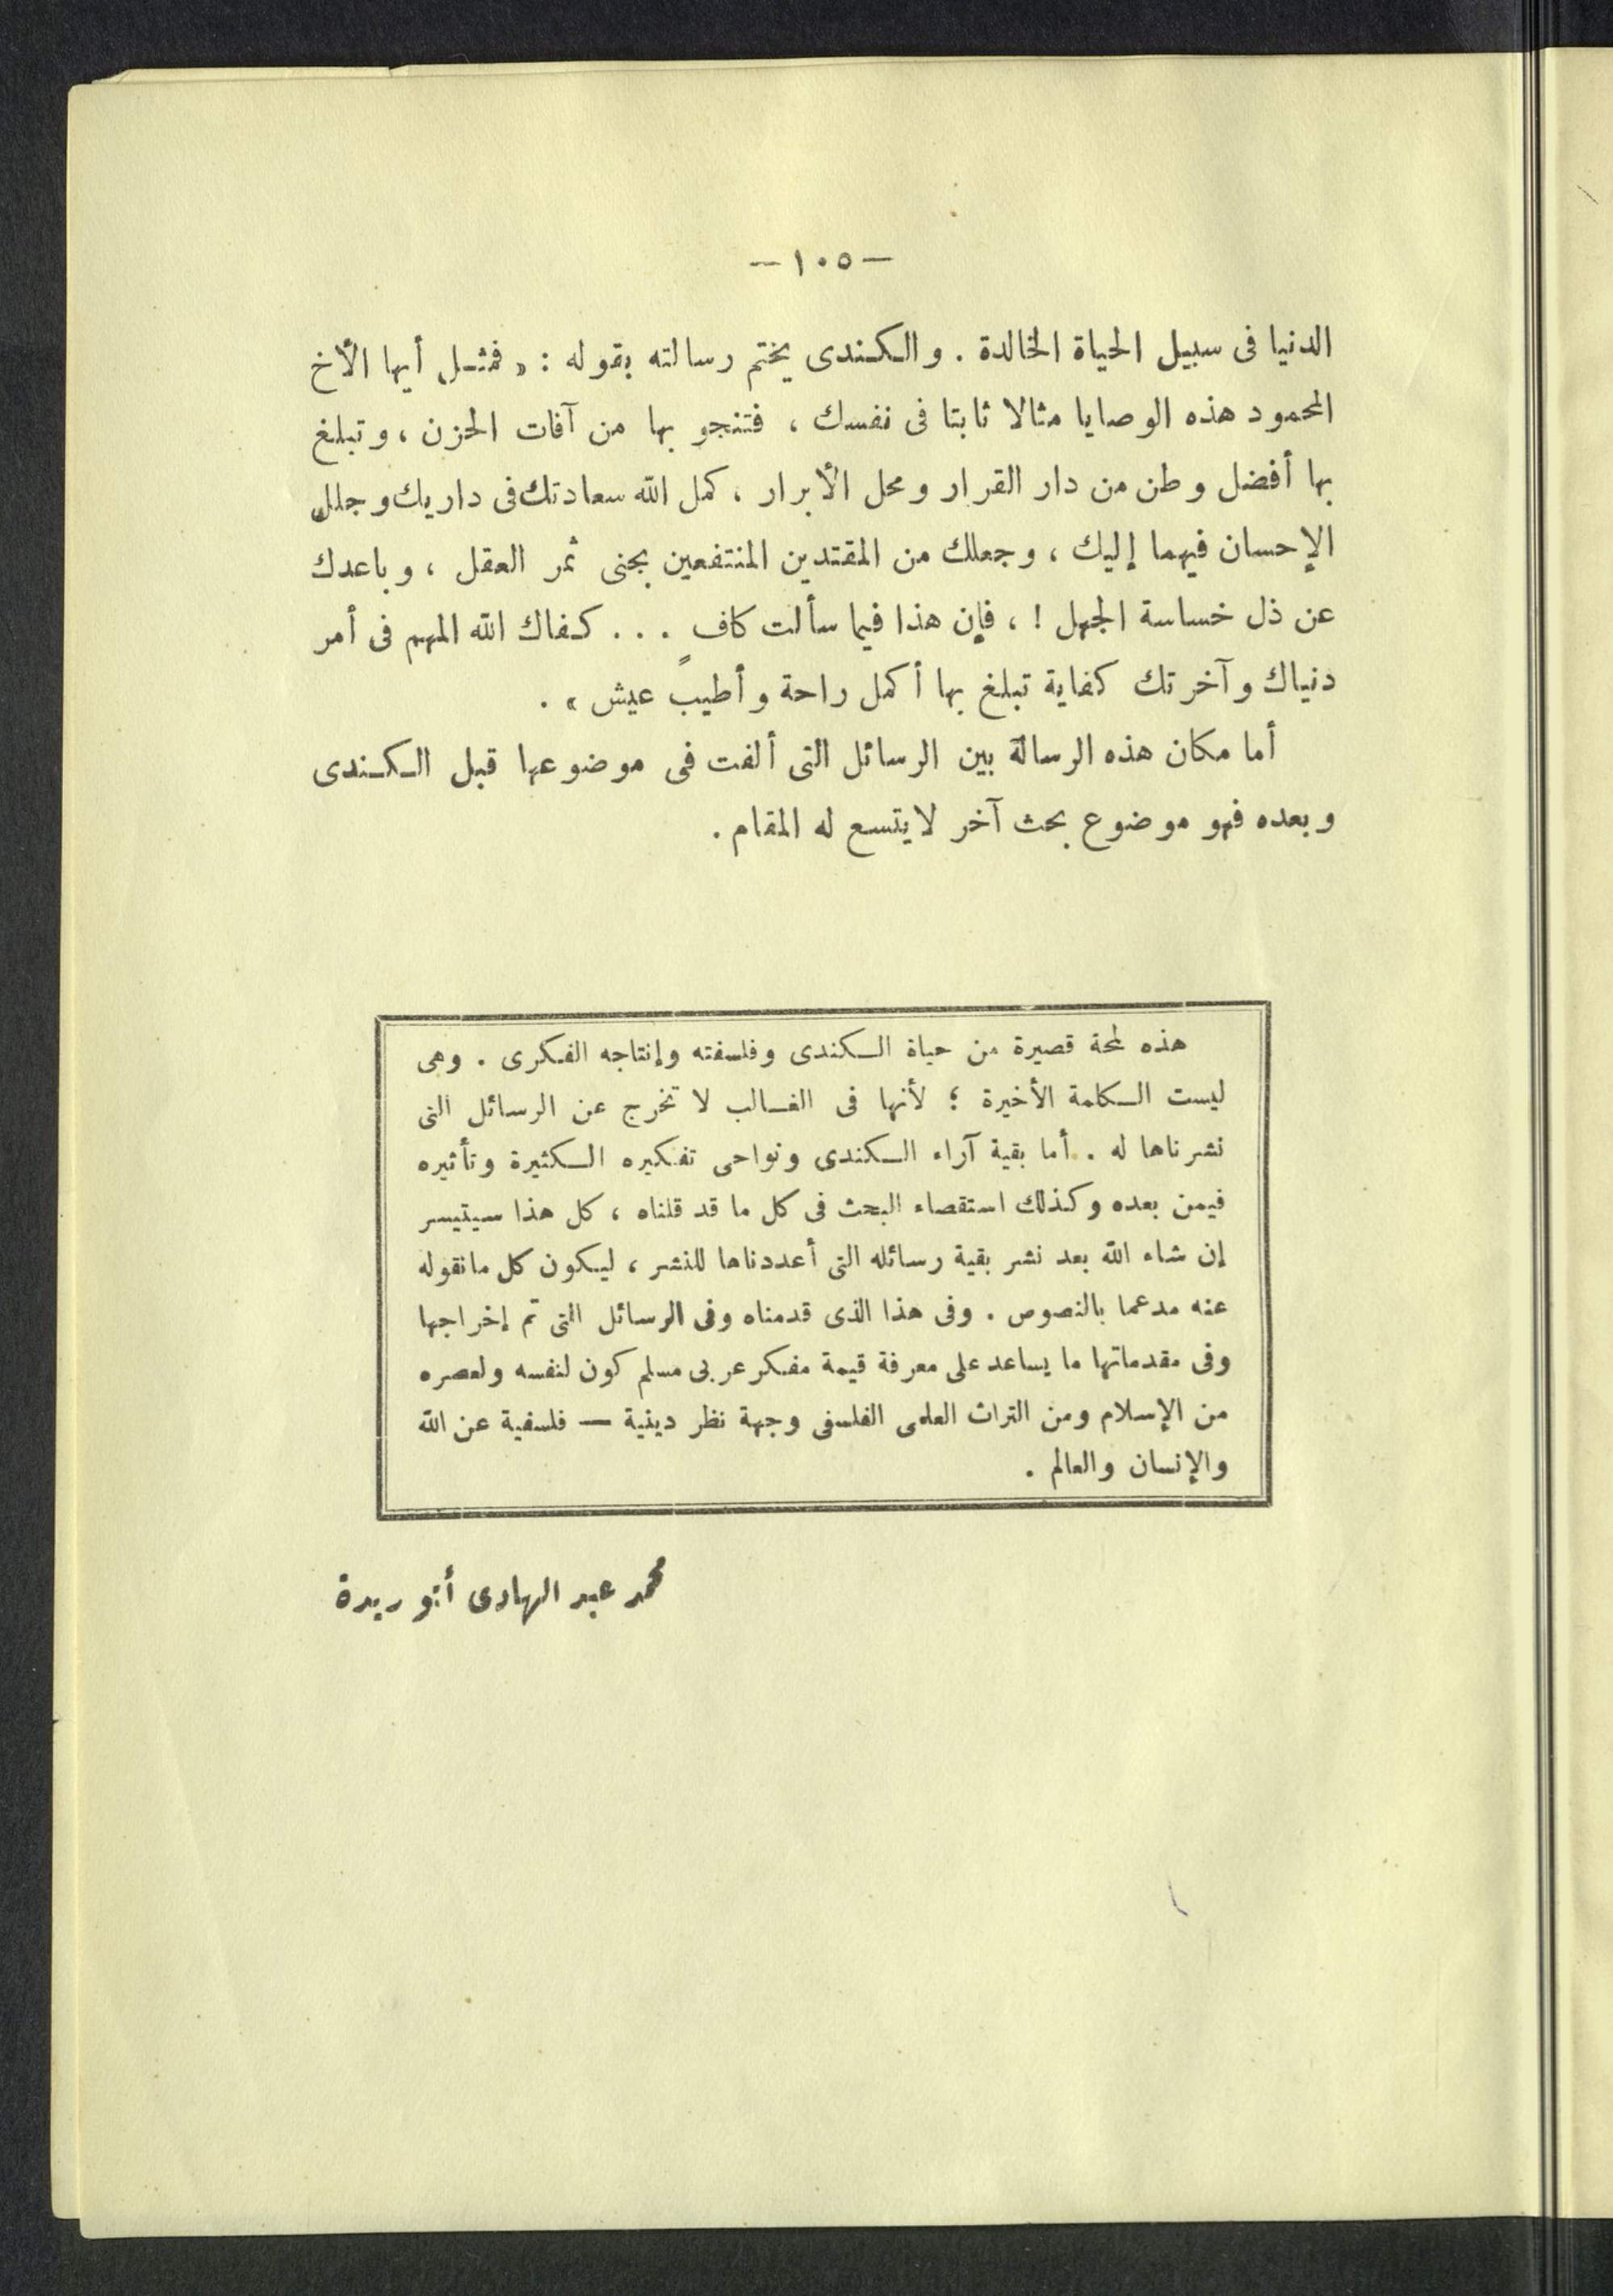 — ١٠٥ —
الدنيا فى سبيل الحياة الخالدة . والكندى يختم رسالته بقوله : « فمثل أيها الأخ
المحمود هذه الوصايا مثالا ثابتا فى نفسك ، فتنجو بها من آفات الحزن ، وتبلغ
بها أفضل وطن من دار القرار ومحل الأبرار ، كمل الله سعادتك فى داريك وجلل
الإحسان فيهما إليك ، وجعلك من المقتدين المنتفعين بجنى ثمر العقل ، وباعدك
عن ذل خساسة الجهل ! ، فإن هذا فيما سألت كافٍ . . . كفاك الله المهم فى أمر
دنياك وآخرتك كفاية تبلغ بها أكمل راحة وأطيب عيش » .
أما مكان هذه الرسالة بين الرسائل التى ألفت فى موضوعها قبل الكندى
وبعده فهو موضوع بحث آخر لا يتسع له المقام .
هذه لمحة قصيرة من حياة الكندى وفلسفته وإنتاجه الفكرى . وهى
ليست الكلمة الأخيرة ؛ لأنها فى الغالب لا تخرج عن الرسائل التى
نشرناها له . أما بقية آراء الكندى ونواحى تفكيره الكثيرة وتأثيره
فيمن بعده وكذلك استقصاء البحث فى كل ما قد قلناه ، كل هذا سيتيسر
إن شاء الله بعد نشر بقية رسائله التى أعددناها للنشر ، ليكون كل مانقوله
عنه مدعما بالنصوص . وفى هذا الذى قدمناه وفى الرسائل التى تم إخراجها
وفى مقدماتها ما يساعد على معرفة قيمة مفكر عربى مسلم كون لنفسه ولعصره
من الإسلام ومن التراث العلمى الفلسفى وجهة نظر دينية — فلسفية عن الله
والإنسان والعالم .
محمد عبد الهادى أبو ريدة